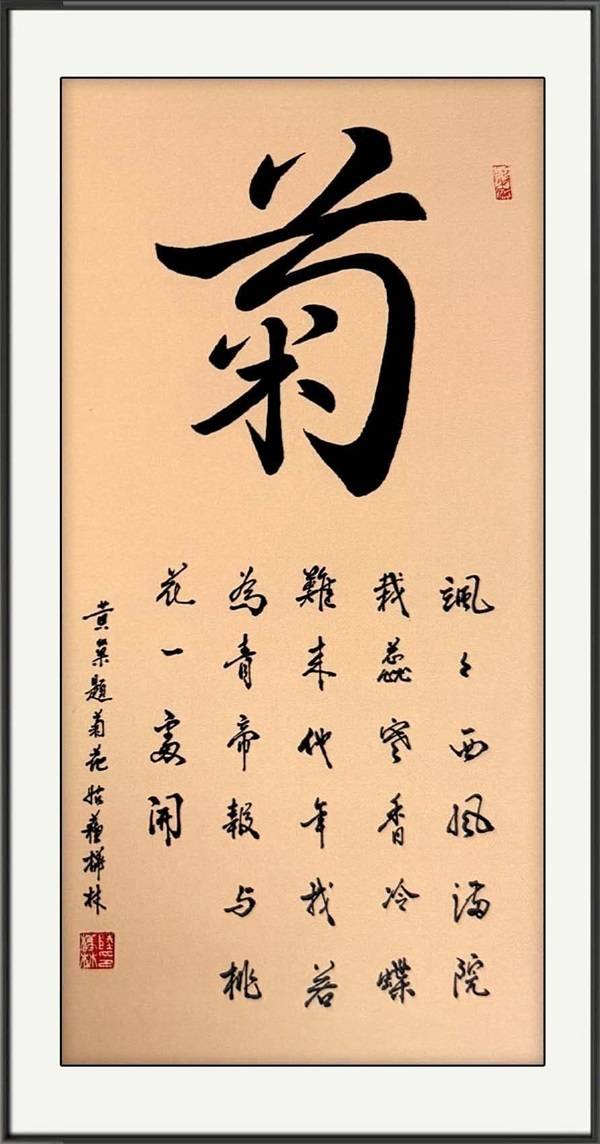 菊
颯々西風满院
栽蕊寒香冷蝶
難来他年我若
為青帝報与桃
花一處開
黄巢題菊花 姑蘇樺林